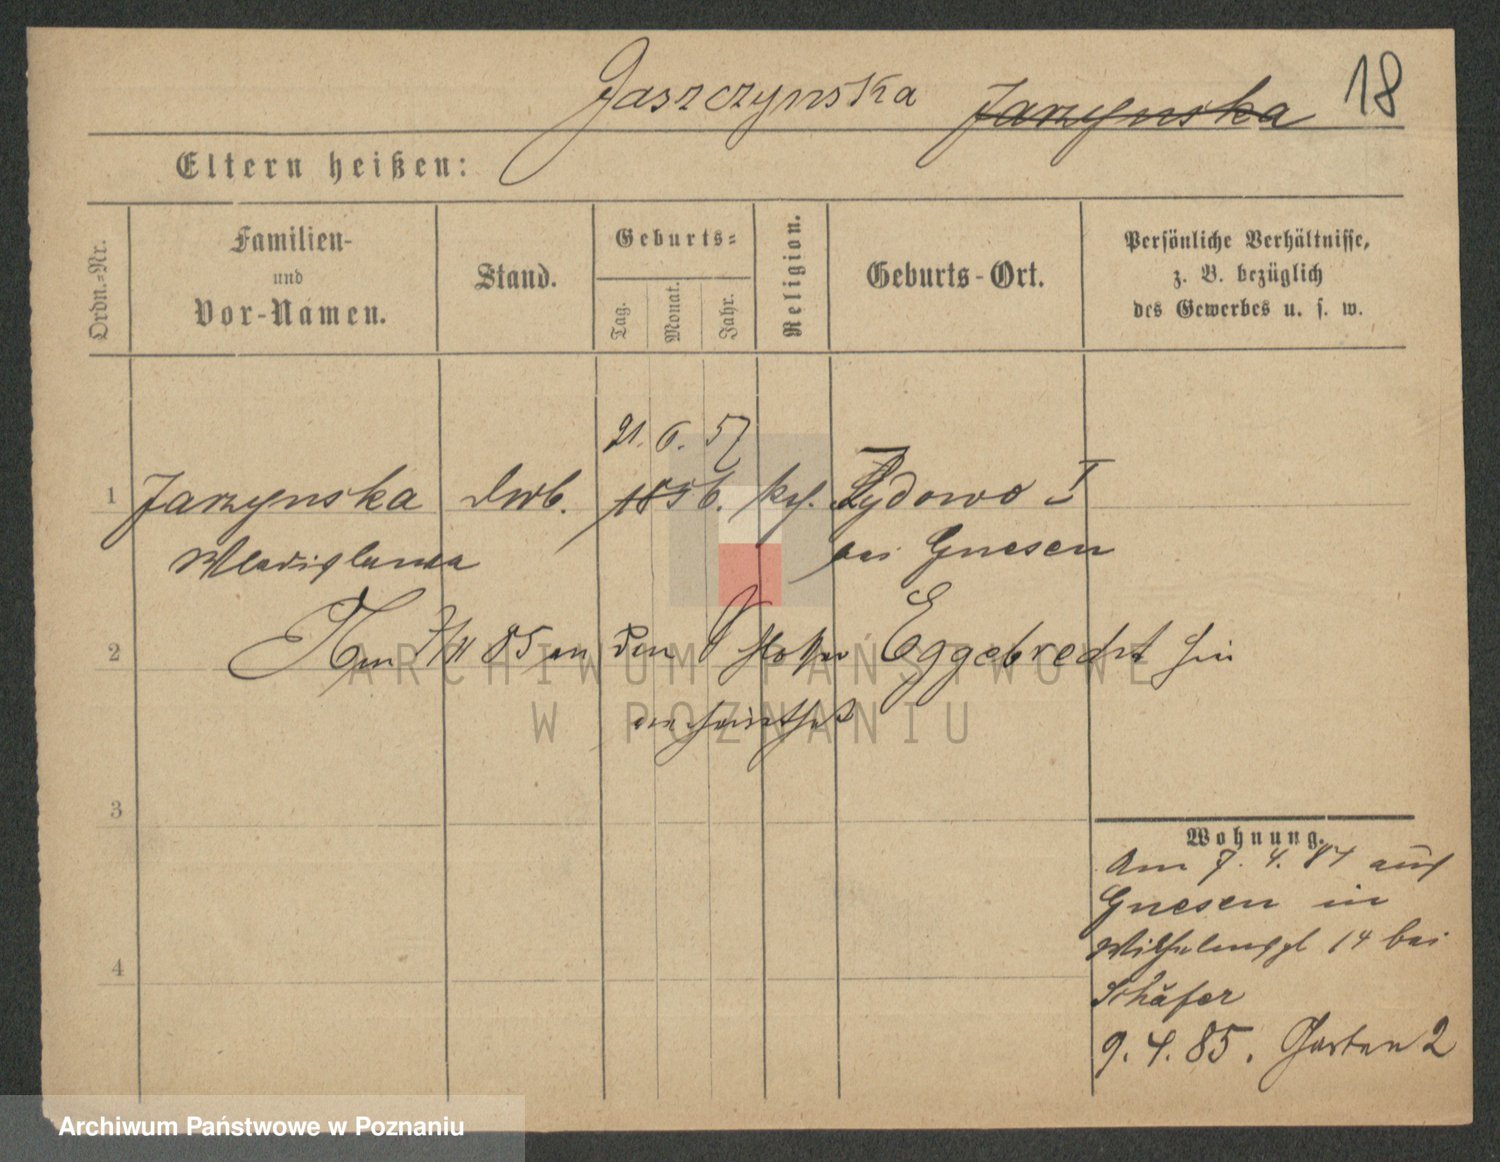 Jaszczynska Jarzynska 18
Eltern heißen:
Ordn.-Nr.
Familien-
und
Vor-Namen.
Stand.
Geburts-
Tag.
Monat.
Jahr.
Religion.
Geburts-Ort.
Persönliche Verhältnisse,
z. B. bezüglich
des Gewerbes u. s. w.
21. 6. 57
1 Jarzynska 1856. Zydowo I
bei Gnesen
2 Am 7/11 85 an den Eggebrecht
3
4
Wohnung.
Am 7. 4. 84 aus
Gnesen in
14 bei
Schäfer
9. 4. 85. Garten 2
ARCHIWUM PAŃSTWOWE
W POZNANIU
Archiwum Państwowe w Poznaniu